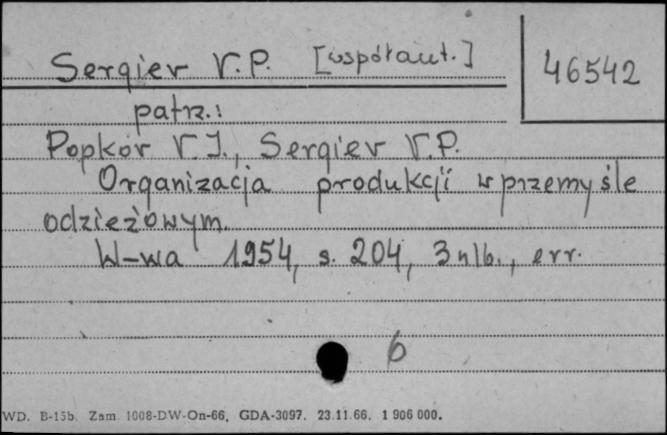 Sergiev V.P. [współaut.]
46542
patrz:
Popkov V.I., Sergiev V.P.
Organizacja produkcji w przemyśle
odzieżowym.
W-wa 1954, s. 204, 3 nlb., err.
6
WD. B-15b. Zam. 1008-DW-On-66, GDA-3097. 23.11.66. 1 906 000.